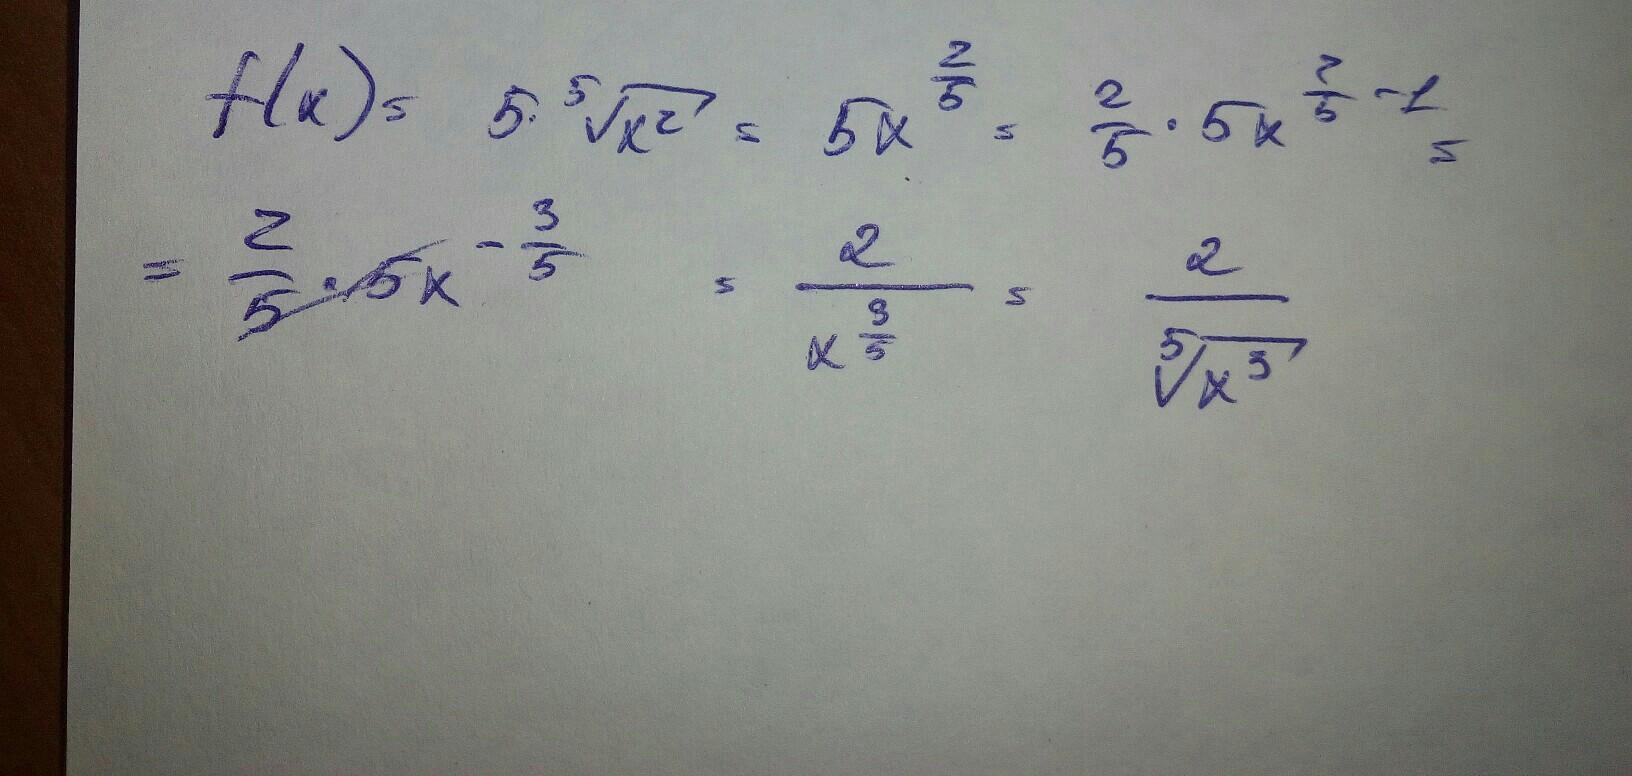 f(x) = 5·⁵√x² = 5x^(2/5) = 2/5 · 5x^(2/5 - 1) =
= 2/5 · 5x^(-3/5) = 2/x^(3/5) = 2/⁵√x³